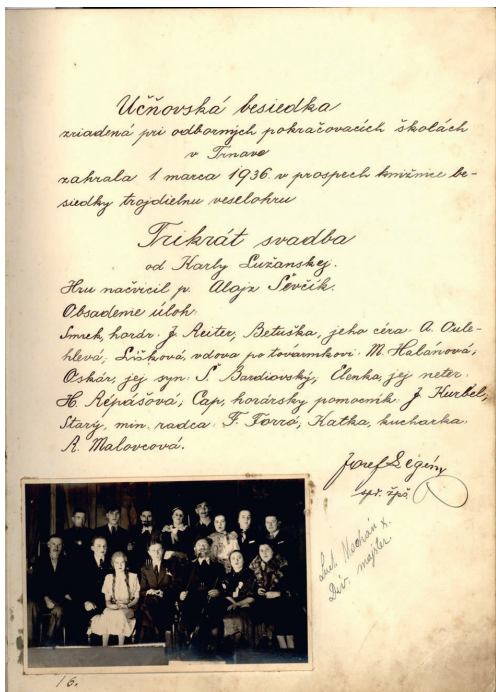 Učňovská besiedka
zriadená pri odborných pokračovacích školách
v Trnave
zahrala 1 marca 1936 v prospech knižnice be-
siedky trojdielnu veselohru
Trikrát svadba
od Karly Lužanskej.
Hru načvičil p. Alojz Ševčík.
Obsadenie úloh:
Smrek, horár: J. Reiter, Betuška, jeho céra: A. Oule-
hlevá, Lížková, vdova po továrnikovi: M. Halánová,
Oskár, jej syn: Š. Bardiovský, Elenka, jej neter:
H. Répášová, Cap, horársky pomocník: J. Kurbel,
Starý, min. radca: F. Forró, Katka, kucharka:
A. Malovcová.
Jozef
spr. žpš
Lud.
Div. majster.
16.